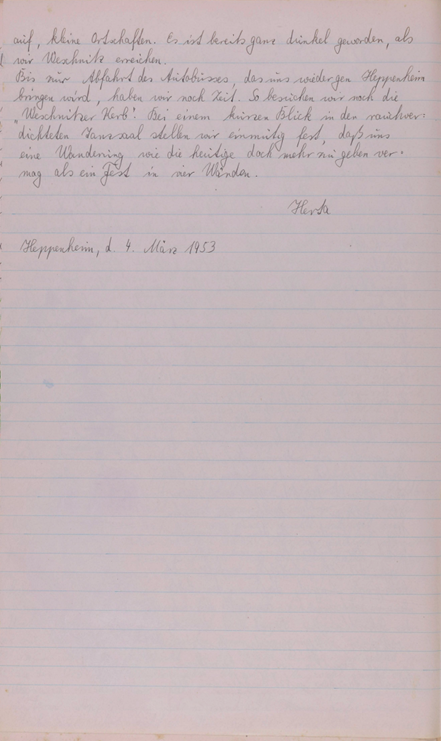 auf, kleine Ortschaften. Es ist bereits ganz dunkel geworden, als
wir Weschnitz erreichen.
Bis zur Abfahrt des Autobusses, das uns wieder gen Heppenheim
bringen wird, haben wir noch Zeit. So besuchen wir noch die
"Weschnitzer Kerb". Bei einem kurzen Blick in den rauchver-
dichteten Tanzsaal stellen wir einmütig fest, daß uns
eine Wanderung wie die heutige doch mehr zu geben ver-
mag als ein Fest in vier Wänden.
Herta
Heppenheim, d. 4. März 1953